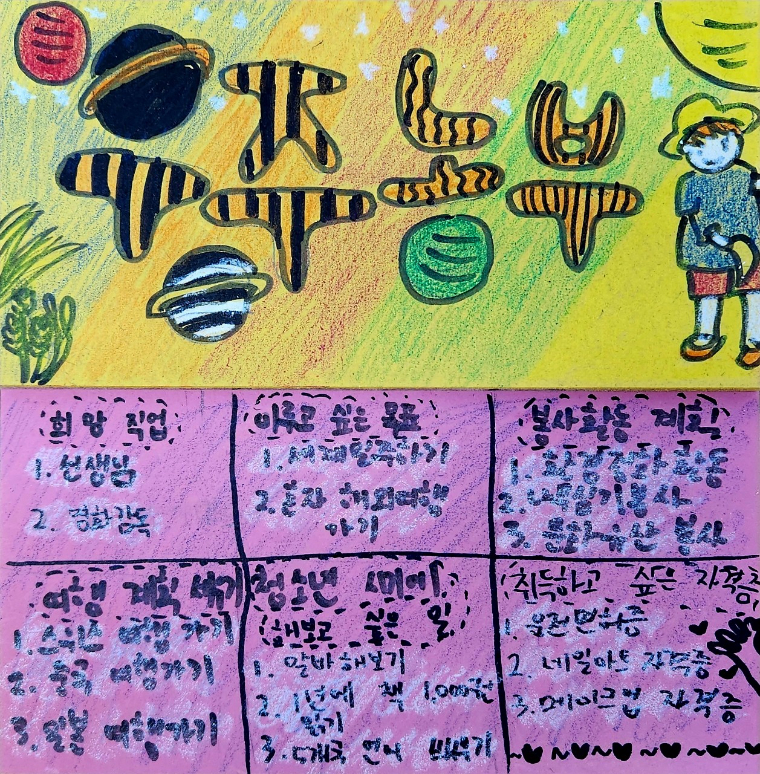 우주농부
희망 직업
1. 선생님
2. 영화감독
이루고 싶은 목표
1. 세계일주하기
2. 혼자 해외여행
가기
봉사활동 계획
1. 환경정화 활동
2. 봉사
3. 문화유산 봉사
여행 계획 세우기
1. 스위스 여행 가기
2. 중국 여행가기
3. 일본 여행가기
청소년 시기에
해보고 싶은 일
1. 알바해보기
2. 1년에 책 1,000권
읽기
3. 5개국 언어 배우기
취득하고 싶은 자격증
1. 운전면허증
2. 네일아트 자격증
3. 메이크업 자격증